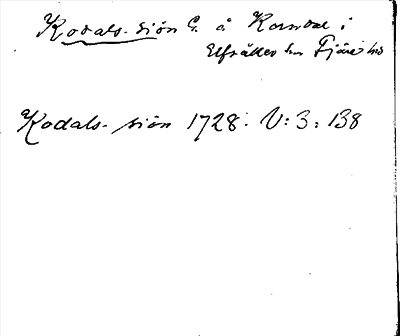 Kodals-siön G. å Korndal i
Elfsåkers sn Fjäre hd
Kodals-siön 1728: V:3:138